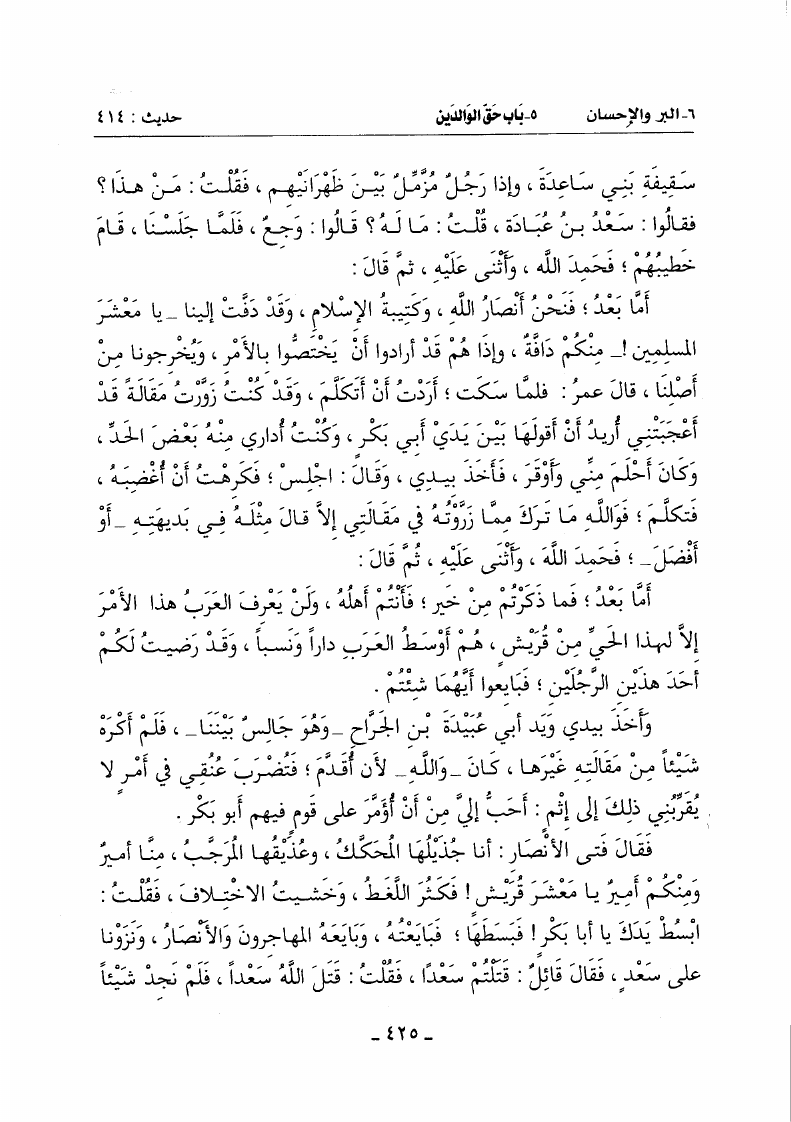 ٦-البر والإحسان ٥-بَاب حَقَّ الوَالدَين حديث : ٤١٤
سَقِيفَةِ بَنِي سَاعِدَةَ ، وإذا رَجُلٌ مُزَّمِّلٌ بَيْنَ ظَهْرَانَيْهِم ، فَقُلْتُ : مَن هذا ؟
فقالُوا : سَعْدُ بنُ عُبَادَة ، قُلْتُ : مَا لَهُ ؟ قَالُوا : وَجِعٌ ، فَلَمَّا جَلَسْنَا ، قَامَ
خَطيبُهُمْ ؛ فَحَمِدَ الله ، وَأَثْنَى عَلَيهِ ، ثمَّ قالَ :
أَمَّا بَعْدُ ؛ فَنَحْنُ أَنْصَارُ اللَّهِ ، وَكَتِيبَةُ الإِسْلامِ ، وَقَدْ دَفَّتْ إلينا _يا مَعْشَرَ
المسلمين !_ مِنْكُم دَافَّةٌ ، وَإِذَا هُمْ قَدْ أرادوا أَنْ يَخْتَصُّوا بالأَمْرِ ، وَيُخْرِجونا مِنْ
أَصْلِنَا ، قالَ عمرُ : فلمَّا سَكَت ؛ أَرَدْتُ أَنْ أَتَكَلَّمَ ، وَقَدْ كُنْتُ زَوَّرْتُ مَقَالَةً قَدْ
أَعْجَبَتْنِي أُريدُ أَنْ أَقولَهَا بَيْنَ يَدَيْ أَبي بَكْرٍ ، وَكُنْتُ أُدارِي مِنْهُ بَعْضَ الحَدِّ ،
وَكَانَ أَحْلَمَ مِنِّي وَأَوْقَرَ ، فَأَخَذَ بيَدِي ، وَقَالَ : اجْلِسْ ؛ فَكَرِهْتُ أَنْ أُغْضِبَهُ ،
فَتَكَلَّمَ ؛ فَوَاللَّهِ مَا تَرَكَ مِمَّا زَوَّرْتُهُ فِي مَقَالَتِي إلاَّ قالَ مِثْلَهُ فِي بَديهَتِهِ _أَوْ
أَفْضَلَ_ ؛ فَحَمِدَ اللَّهَ ، وَأَثْنَى عَلَيْهِ ، ثُمَّ قَالَ :
أَمَّا بَعْدُ ؛ فَما ذَكَرْتُمْ مِنْ خَيرٍ ؛ فَأَنْتُم أَهلُهُ ، وَلَنْ يَعْرِفَ العَرَبُ هذا الأَمْرَ
إلاَّ لهذا الحَيِّ مِنْ قُرَيْشٍ ، هُم أَوْسَطُ العَرَبِ داراً وَنَسباً ، وَقَدْ رَضيتُ لَكُمْ
أَحَدَ هذَيْنِ الرَّجُلَينِ ؛ فَبَايعوا أَيَّهُمَا شِئْتُمْ .
وَأَخَذَ بيدي وَيَد أبي عُبَيْدَةَ بْنِ الجَرَّاحِ _وَهُوَ جَالِسٌ بَيْنَنَا_ ، فَلَمْ أَكْرَهْ
شَيْئاً مِنْ مَقَالَتِهِ غَيْرَهَا ، كَانَ _وَاللَّهِ_ لأَن أُقَدَّمَ ؛ فَتُضْرَبَ عُنُقِي فِي أَمْرٍ لا
يُقَرِّبُنِي ذلِكَ إلى إِثْمٍ : أَحَبَّ إِلَيَّ مِنْ أَنْ أُؤَمَّرَ على قَومٍ فيهم أبو بَكْر .
فَقَالَ فَتَى الأَنْصَارِ : أنا جُذَيْلُهَا المُحَكَّكُ ، وعُذَيْقُها المُرَجَّبُ ، مِنَّا أَميرٌ
وَمِنْكُمْ أَميرٌ يا مَعْشَرَ قُرَيْشٍ ! فَكَثُرَ اللَّغَطُ ، وَخَشيتُ الاخْتِلافَ ، فَقُلْتُ :
ابْسُطْ يَدَكَ يا أبا بَكْرٍ ! فَبَسَطَهَا ؛ فَبَايَعْتُهُ ، وَبَايَعَهُ المهاجرونَ وَالأَنْصَارُ ، وَنَزَوْنا
على سَعْدٍ ، فَقَالَ قَائِلٌ : قَتَلْتُمْ سَعْدًا ، فَقُلْتُ : قَتَلَ اللَّهُ سَعْداً ، فَلَم نَجِدْ شَيْئاً
_ ٤٢٥ _